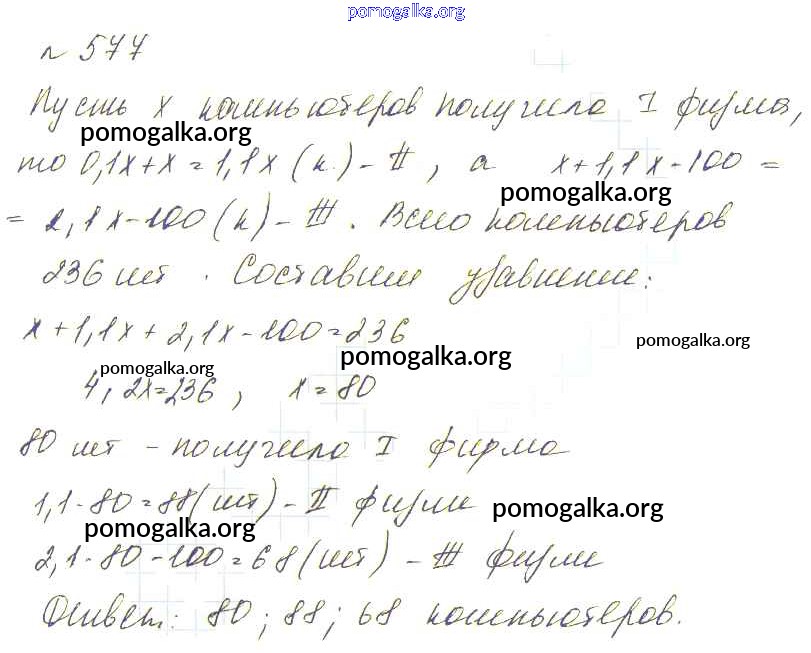 pomogalka.org
№ 577
Пусть x компьютеров получила I фирма,
pomogalka.org
то 0,1x+x=1,1x (к.) - II, а x+1,1x-100 =
pomogalka.org
= 2,1x-100 (к) - III. Всего компьютеров
236 шт. Составим уравнение:
x+1,1x+2,1x-100=236
pomogalka.org pomogalka.org pomogalka.org
4,2x=236, x=80
80 шт - получила I фирма
1,1·80=88(шт) - II фирма
pomogalka.org pomogalka.org
2,1·80-100=68(шт) - III фирма
Ответ: 80; 88; 68 компьютеров.